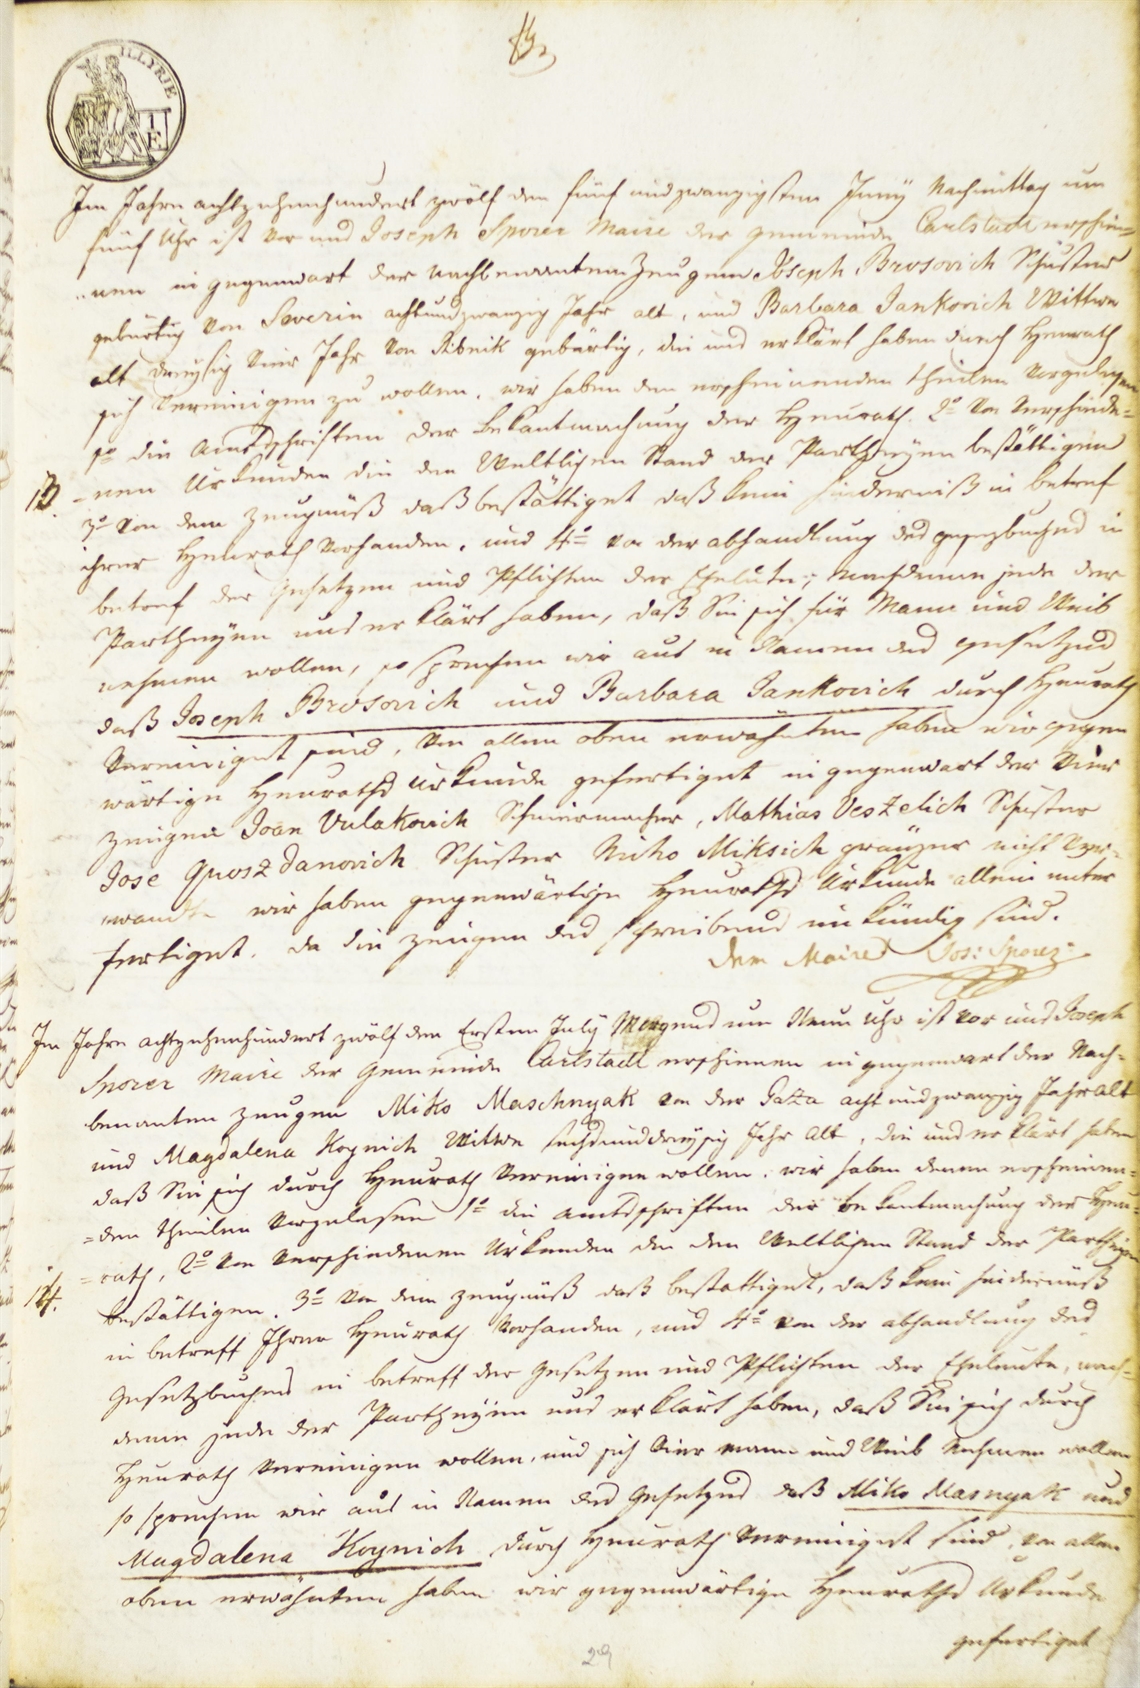 ILLYRIE
Im Jahre achtzehnhundert zwölf den fünf und zwanzigsten Juny Nachmittag um
fünf Uhr ist vor uns Joseph Sporer Maire der gemeinde Carlstadt erschie=
nen in gegenwart der nachbenanten Zeugen Joseph Brosovich Schuster
gebürtig von Severin achtundzwanzig Jahr alt, und Barbara Jankovich Wittwe
alt dreysig vier Jahr von Ribnik gebürtig, die uns erklärt haben durch Heurath
sich Vereinigen zu wollen. wir haben den erscheinenden theilen Vorgelesen
1o die Amtsschriften der bekantmachung der Heurath. 2o Von Verschiede=
13. =nen Urkunden die den Weltlichen Stand der Partheyen bestättigen
3o Von dem Zeugnüß daß bestättiget daß kein hinderniß in betref
ihrer Heurath Vorhanden, und 4o von der abhandlung des gesezbuches in
betref der Gesetzen und Pflichten der Eheleute; nachdeme jede der
Partheyen uns erklärt haben, daß Sie sich für Mann und Weib
nehmen wollen, so sprechen wir aus in Namen des gesetzes
daß Joseph Brosovich und Barbara Jankovich durch Heurath
Vereiniget sind, Von allen oben erwähnten haben wir gegen
wärtige Heuraths Urkunde gefertiget in gegenwart der Vier
Zeugen Joan Vulakovich Schneiermacher, Mathias Veszelich Schuster
Jose Gvoszdanovich Schuster Miko Miksich gränzer nicht Ver=
wandte wir haben gegenwärtige Heuraths Urkunde allein unter
fertiget. da die Zeugen des schreibens unkündig sind.
Der Maire Jos: Sporer
Im Jahre achtzehnhundert zwölf den Ersten July Morgens um Neun Uhr ist vor uns Joseph
Sporer Maire der Gemeinde Carlstadt erschienen in gegenwart der Nach=
benanten Zeugen Miko Maschnyak von der acht und zwanzig Jahr alt
und Magdalena Koynich Wittwe sechsunddreysig Jahr alt, die uns erklärt haben
daß Sie sich durch Heurath Vereinigen wollen. wir haben denen erscheinen=
=den theilen Vorgelesen 1o die Amtsschriften der bekantmachung der Heu=
=rath, 2o Von Verschiedenen Urkunden die den Weltlichen Stand der Partheyen
14. bestättigen. 3o Von dem Zeugnüß daß bestattiget, daß kein hindernüß
in betreff Ihrer Heurath Vorhanden, und 4o von der abhandlung des
Gesetzbuches in betreff der Gesetzen und Pflichten der Eheleute, nach=
deme jede der Partheyen uns erklärt haben, daß Sie sich durch
Heurath Vereinigen wollen, und sich Vier mann und Weib Nehmen wollen
so sprechen wir aus in Namen des Gesetzes daß Miko Masnyak und
Magdalena Koynich durch Heurath Vereiniget sind, von allen
oben erwähnten haben wir gegenwärtige Heuraths Urkunde
gefertiget
29